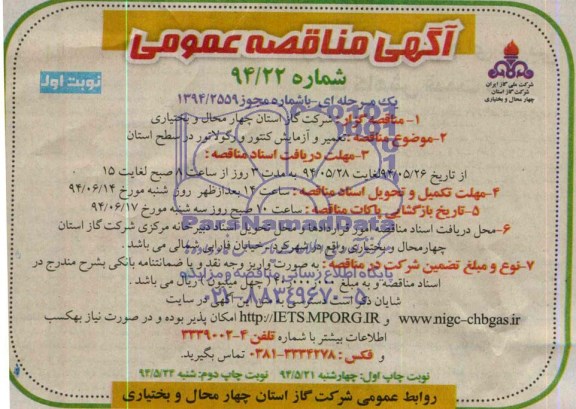 آگهی مناقصه عمومی
شماره ۹۴/۲۲
نوبت اول
شرکت ملی گاز ایران
شرکت گاز استان
چهار محال و بختیاری
یک مرحله ای - باشماره مجوز ۱۳۹۴/۲۵۵۹
۱- مناقصه گزار: شرکت گاز استان چهار محال و بختیاری
۲-موضوع مناقصه :تعمیر و آزمایش کنتور و رگولاتور در سطح استان
۳-مهلت دریافت اسناد مناقصه :
از تاریخ ۹۴/۰۵/۲۶ لغایت ۹۴/۰۵/۲۸ به مدت ۳ روز از ساعت ۸ صبح لغایت ۱۵
۴-مهلت تکمیل و تحویل اسناد مناقصه : ساعت ۱۴ بعدازظهر روز شنبه مورخ ۹۴/۰۶/۱۴
۵-تاریخ بازگشایی پاکات مناقصه : ساعت ۱۰ صبح روز سه شنبه مورخ ۹۴/۰۶/۱۷
۶-محل دریافت اسناد مناقصه امور قراردادها و محل تحویل اسناد دبیرخانه مرکزی شرکت گاز استان
چهارمحال و بختیاری واقع در شهرکرد، خیابان فارابی شمالی می باشد .
۷-نوع و مبلغ تضمین شرکت در مناقصه : به صورت واریز وجه نقد و یا ضمانتنامه بانکی بشرح مندرج در
اسناد مناقصه و به مبلغ ۴۰،۰۰۰،۰۰۰ ( چهل میلیون ) ریال می باشد .
شایان ذکر است دسترسی به متن این آگهی در سایت
www.nigc-chbgas.ir و http://IETS.MPORG.IR امکان پذیر بوده و در صورت نیاز بهکسب
اطلاعات بیشتر با شماره تلفن ۴-۳۳۳۹۰۰۲
و فکس : ۳۳۳۴۲۷۸-۰۳۸۱ تماس بگیرید.
نوبت چاپ اول: چهارشنبه ۹۴/۵/۲۱ نوبت چاپ دوم: شنبه ۹۴/۵/۲۴
روابط عمومی شرکت گاز استان چهار محال و بختیاری
ParsNamadData
پایگاه اطلاع رسانی مناقصه و مزایده
۰۲۱-۸۸۳۴۹۶۷۰-۵